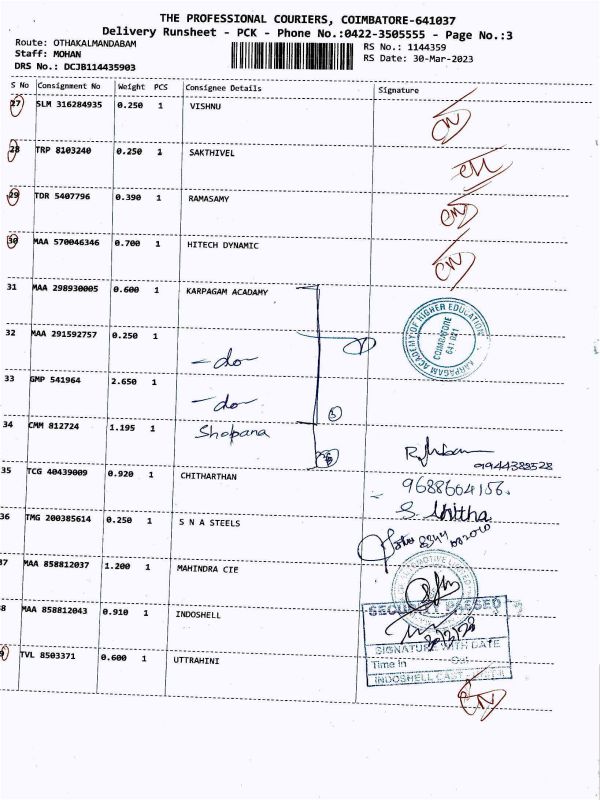 THE PROFESSIONAL COURIERS, COIMBATORE-641037
Delivery Runsheet - PCK - Phone No.:0422-3505555 - Page No.:3
Route: OTHAKALMANDABAM RS No.: 1144359
Staff: MOHAN RS Date: 30-Mar-2023
DRS No.: DCJB114435903
S No Consignment No Weight PCS Consignee Details Signature
27 SLM 316284935 0.250 1 VISHNU CN
28 TRP 8103240 0.250 1 SAKTHIVEL CN
29 TDR 5407796 0.390 1 RAMASAMY CN
30 MAA 570046346 0.700 1 HITECH DYNAMIC CN
31 MAA 298930005 0.600 1 KARPAGAM ACADAMY
KARPAGAM ACADEMY OF HIGHER EDUCATION
COIMBATORE
641 021
32 MAA 291592757 0.250 1 -do-
33 GMP 541964 2.650 1 -do-
34 CMM 812724 1.195 1 Shopana
9944383528
35 TCG 40439009 0.920 1 CHITHARTHAN 9688664156.
36 TMG 200385614 0.250 1 S N A STEELS
37 MAA 858812037 1.200 1 MAHINDRA CIE
38 MAA 858812043 0.910 1 INDOSHELL
SECURITY PASSED
SIGNATURE WITH DATE
Time in Out
INDOSHELL CAST
9 TVL 8503371 0.600 1 UTTRAHINI CN